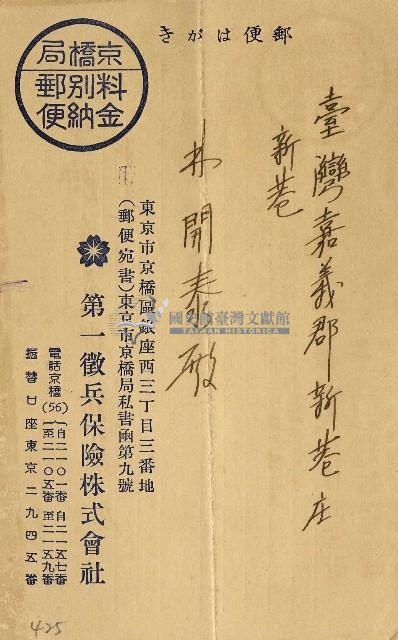 郵便はがき
臺灣嘉義郡新巷庄
新巷
林開泰殿
京橋局
料金別納
郵便
東京市京橋區銀座西三丁目三番地
(郵便宛書)東京市京橋局私書函第九號
第一徵兵保險株式會社
電話京橋(56)
自二一〇一番至二一〇五番
自二一五七番至二一五九番
振替口座東京二九四五番
國史館臺灣文獻館
TAIWAN HISTORICA
425